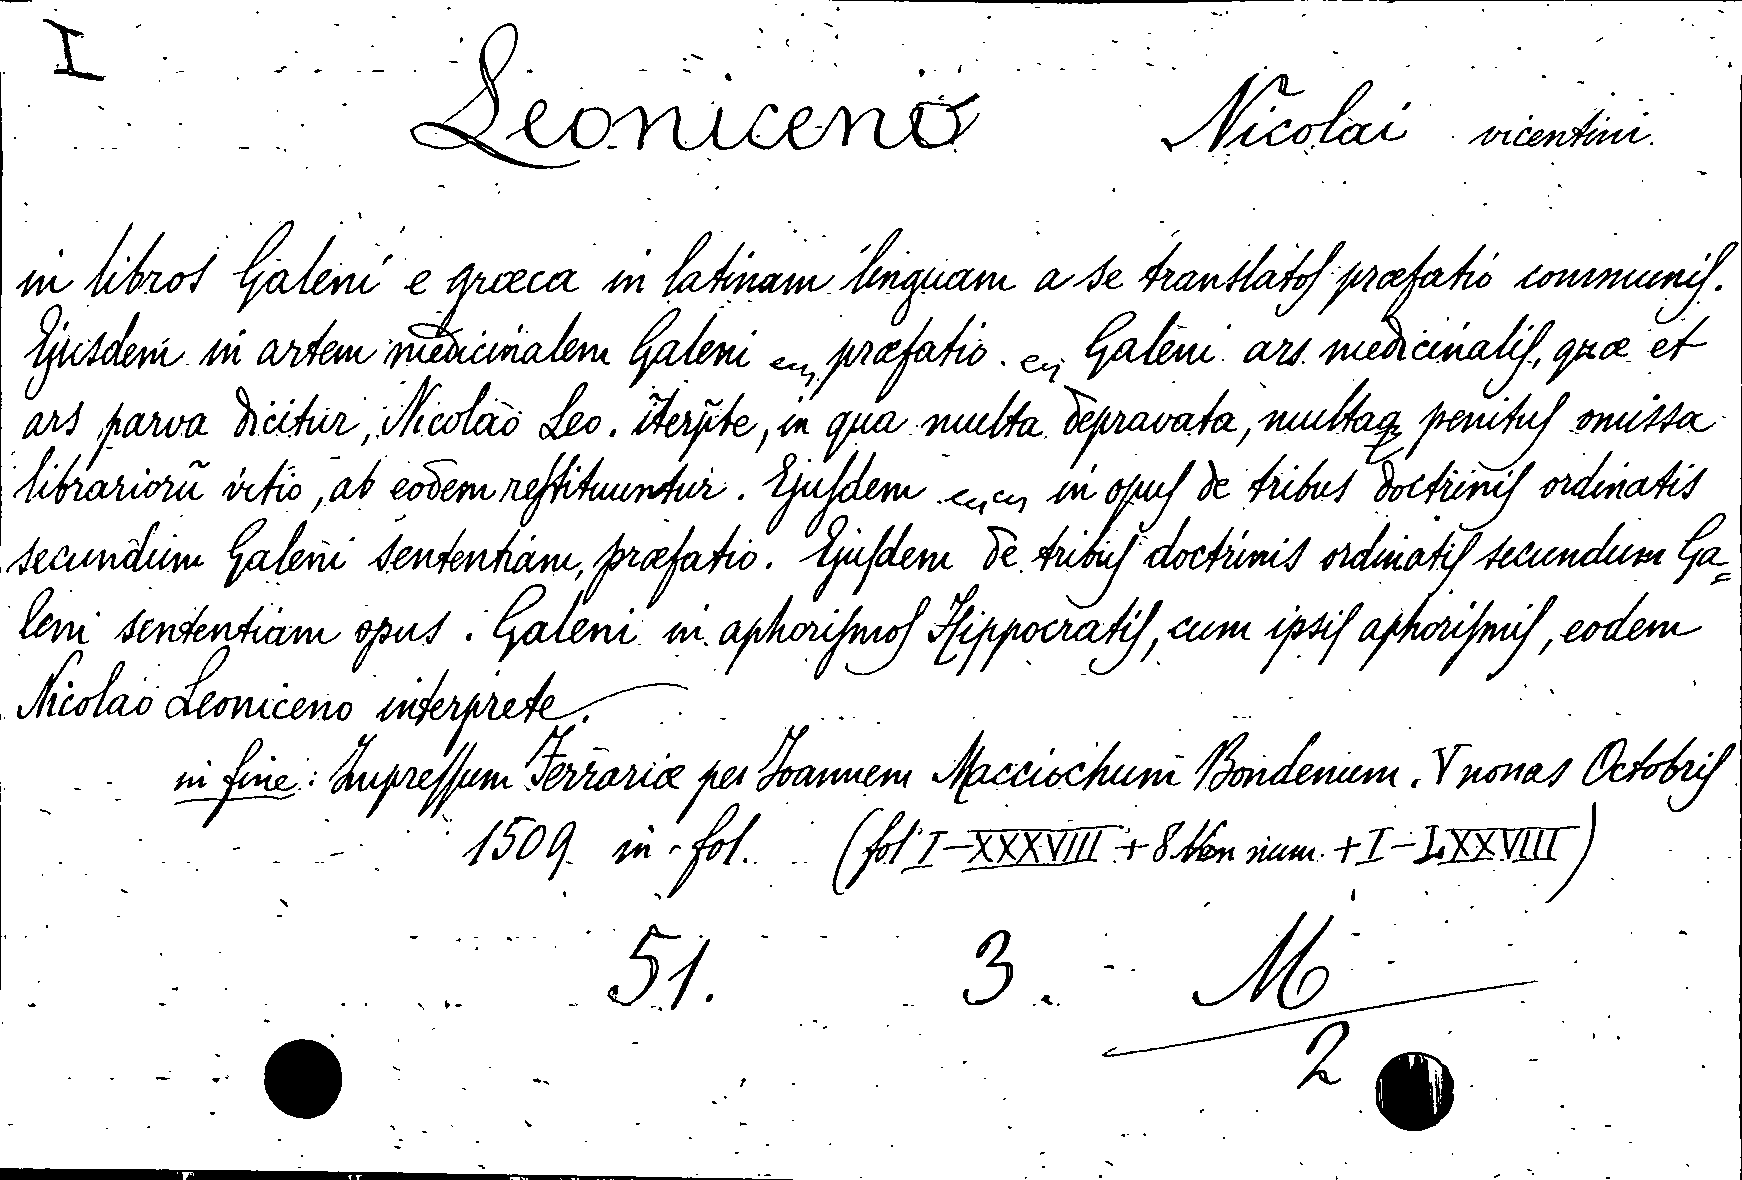 I
Leoniceno Nicolai vicentini.
in libros Galeni e græca in latinam linguam a se translatoſ præfatio communiſ.
Ejusdem in artem medicinalem Galeni præfatio. Galeni ars medicinaliſ, quæ et
ars parva dicitur, Nicolao Leo. īterp̄te, in qua multa depravata, multaqꝫ penituſ omissa
librariorū vitio, ab eodem reſtituuntur. Ejuſdem in opuſ de tribus doctriniſ ordinatis
secundum Galeni sententiam, præfatio. Ejuſdem de tribuſ doctrinis ordinatiſ secundum Ga=
leni sententiam opus. Galeni in aphoriſmoſ Hippocratiſ, cum ipsiſ aphoriſmiſ, eodem
Nicolao Leoniceno interprete.
in fine: Impreſſum Ferrariæ per Joannem Macciochum Bondenum. V nonas Octobriſ
1509 in-fol. (fol I-XXXVIII + 8 non num. + I-LXXVIII)
51. 3. M
2